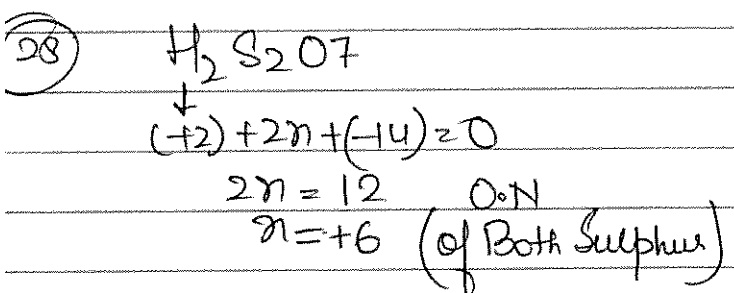 28 H₂S₂O7
↓
(+2) + 2n + (-14) = 0
2n = 12 O.N
n = +6 (of Both Sulphur)